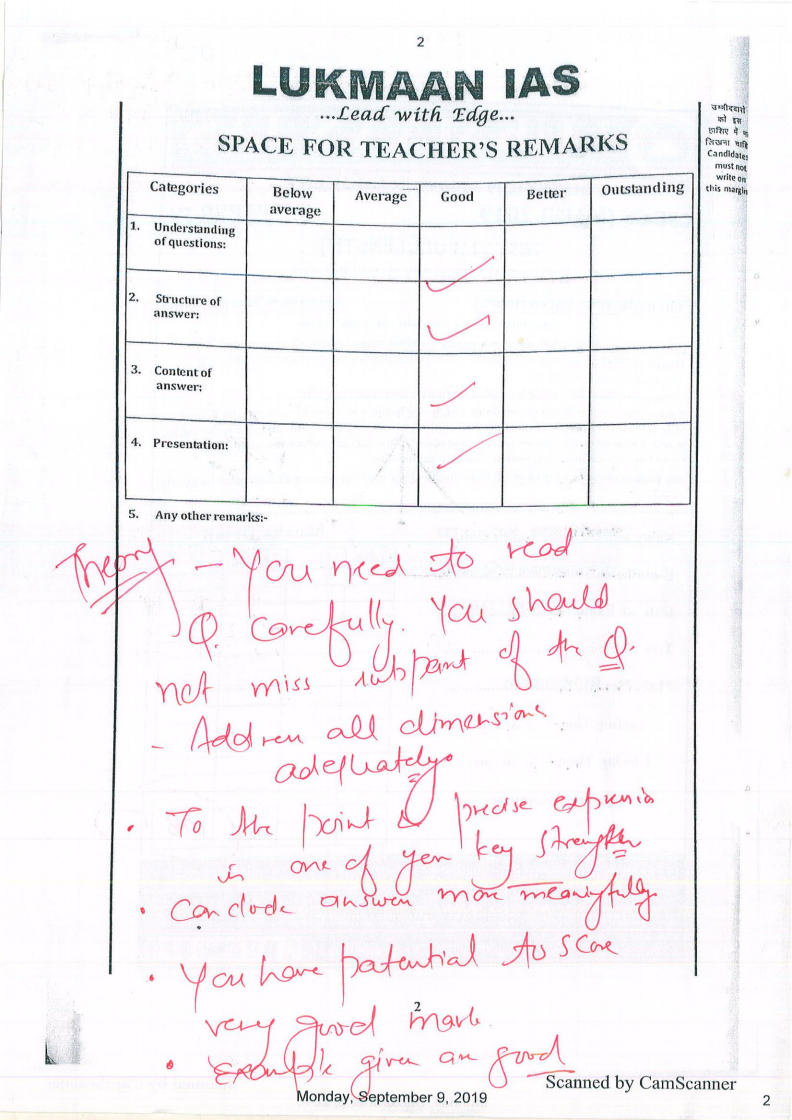 2
LUKMAAN IAS
...Lead with Edge...
SPACE FOR TEACHER'S REMARKS
उम्मीदवारों
को इस
हाशिए में
लिखना
Candidates
must not
write on
this margin
Categories Below average Average Good Better Outstanding
1. Understanding
of questions:
2. Structure of
answer:
3. Content of
answer:
4. Presentation:
5. Any other remarks:-
Theory – You need to read
Q. Carefully. You should
not miss subpart of the Q.
- Address all dimensions
adequately.
• To the point & precise expression
is one of your key strength
• Conclude answer more meaningfully
• You have potential to score
very good mark.
2
• Example given are good
Monday, September 9, 2019
Scanned by CamScanner
2